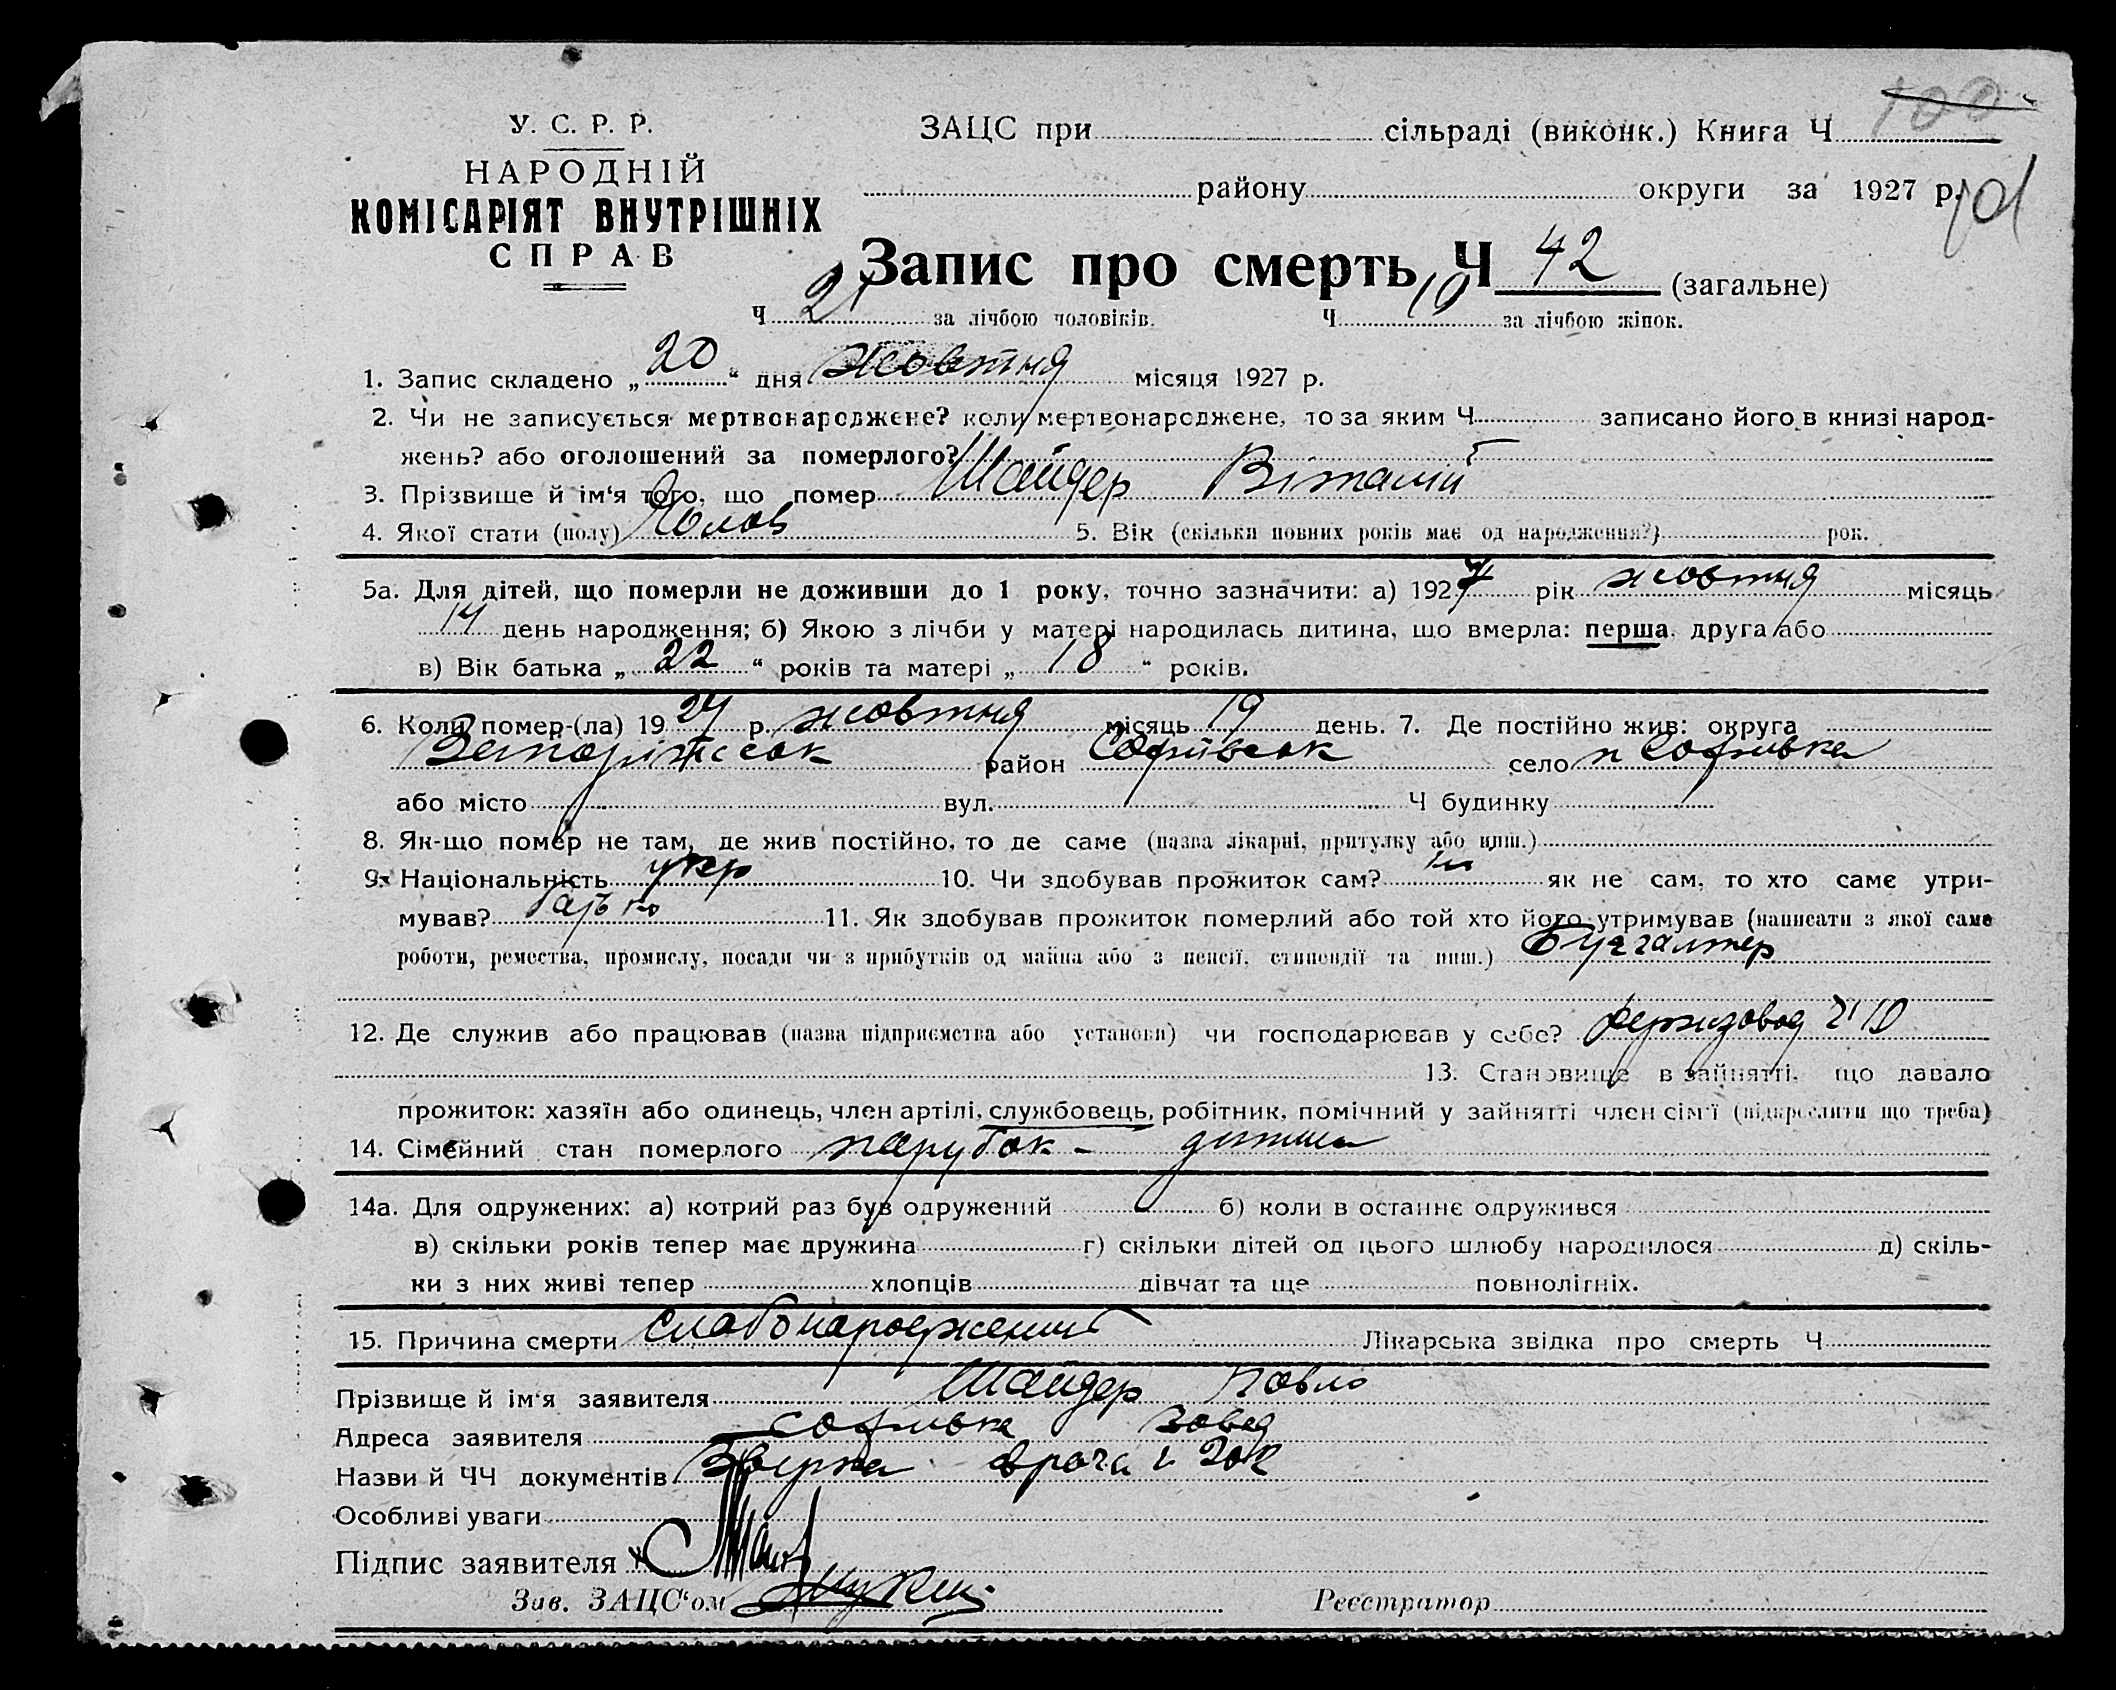 100
У. С. Р. Р.
НАРОДНІЙ
КОМІСАРІЯТ ВНУТРІШНІХ
СПРАВ
ЗАЦС при сільраді (виконк.) Книга Ч
району округи за 1927 р.
101
Запис про смерть Ч 42 (загальне)
Ч 21 за лічбою чоловіків. Ч 19 за лічбою жінок.
1. Запис складено „20“ дня жовтня місяця 1927 р.
2. Чи не записується мертвонароджене? коли мертвонароджене, то за яким Ч записано його в книзі народ-
жень? або оголошений за померлого?
3. Прізвище й ім‘я того, що помер Шайдер Віталій
4. Якої стати (полу) Чолов 5. Вік (скільки повних років має од народження?) рок.
5а. Для дітей, що померли не доживши до 1 року, точно зазначити: а) 1927 рік жовтня місяць
14 день народження; б) Якою з лічби у матері народилась дитина, що вмерла: перша, друга або
в) Вік батька „22“ років та матері „18“ років.
6. Коли помер-(ла) 1927 р. жовтня місяць 19 день. 7. Де постійно жив: округа
Запоріжсок район Софіівсок село п Софиівка
або місто вул. Ч будинку
8. Як-що помер не там, де жив постійно, то де саме (назва лікарні, притулку або инш.)
9. Національність укр 10. Чи здобував прожиток сам? ні як не сам, то хто саме утри-
мував? батько 11. Як здобував прожиток померлий або той хто його утримував (написати з якої саме
роботи, ремества, промислу, посади чи з прибутків од майна або з пенсії, стипендії та инш.) Бухгалтер
12. Де служив або працював (назва підприємства або установи) чи господарював у себе? Держзавод
13. Становище в зайнятті, що давало
прожиток: хазяїн або одинець, член артілі, службовець, робітник, помічний у зайнятті член сім‘ї (підкреслити що треба)
14. Сімейний стан померлого парубок - дитина
14а. Для одружених: а) котрий раз був одружений б) коли в останнє одружився
в) скільки років тепер має дружина г) скільки дітей од цього шлюбу народилося д) скіль-
ки з них живі тепер хлопців дівчат та ще повнолітніх.
15. Причина смерти слабонароджений Лікарська звідка про смерть Ч
Прізвище й ім‘я заявителя Шайдер Павло
Адреса заявителя Софиівка завод
Назви й ЧЧ документів врача
Особливі уваги
Підпис заявителя
Зав. ЗАЦС‘ом Реєстратор